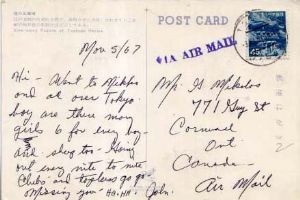 POST CARD
VIA AIR MAIL
Nov 5/67
Hi - Went to Nikko
and at over Tokyo.
boy are there may
girls 6 for every boy -
and shug too - Going
out every nite to nite
Clubs and topless go go
Missing you HA-HA. John.
Mr G Mikolos
771 Guy St
Cornwall
Ont
Canada
Air Mail